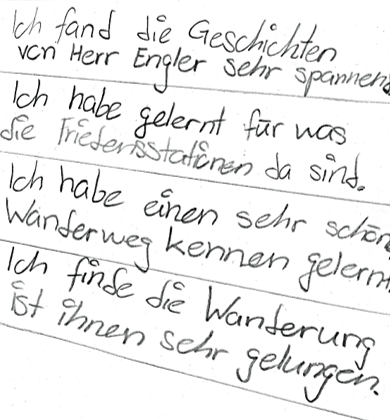 Ich fand die Geschichten
von Herr Engler sehr spannend
Ich habe gelernt für was
die Friedensstationen da sind.
Ich habe einen sehr schön
Wanderweg kennen gelernt
Ich finde die Wanderung
ist ihnen sehr gelungen.